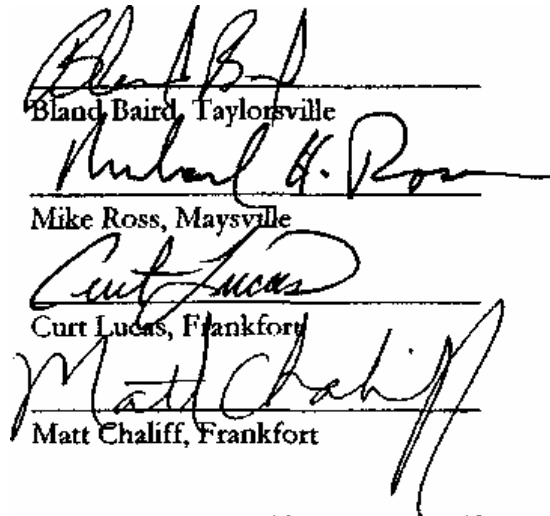 Bland Baird
Bland Baird, Taylorsville
Michael H. Ross
Mike Ross, Maysville
Curt Lucas
Curt Lucas, Frankfort
Matt Chaliff
Matt Chaliff, Frankfort